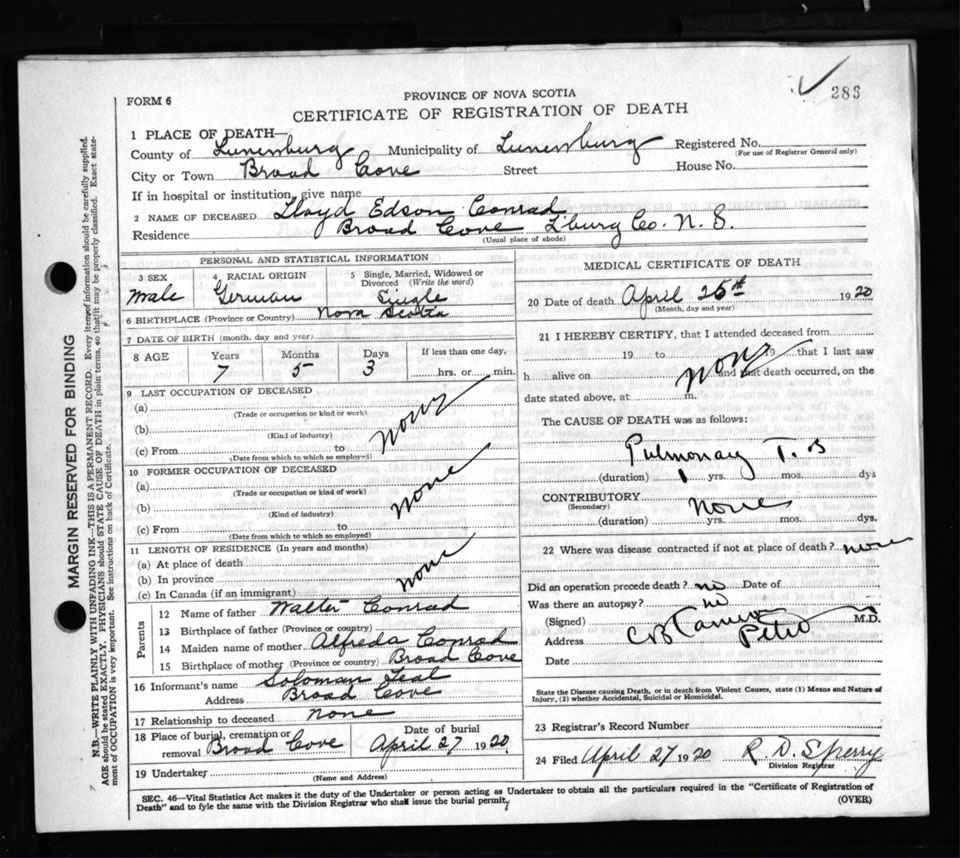 283
FORM 6
PROVINCE OF NOVA SCOTIA
CERTIFICATE OF REGISTRATION OF DEATH
MARGIN RESERVED FOR BINDING
N.B.—WRITE PLAINLY WITH UNFADING INK—THIS IS A PERMANENT RECORD. Every item of information should be carefully supplied.
AGE should be stated EXACTLY. PHYSICIANS should STATE CAUSE OF DEATH in plain terms, so that it may be properly classified. Exact state-
ment of OCCUPATION is very important. See instructions on back of Certificate.
1 PLACE OF DEATH—
County of Lunenburg Municipality of Lunenburg Registered No.
(For use of Registrar General only)
City or Town Broad Cove Street House No.
If in hospital or institution, give name
2 NAME OF DECEASED Lloyd Edson Conrad
Residence Broad Cove L'burg Co. N. S.
(Usual place of abode)
PERSONAL AND STATISTICAL INFORMATION
3 SEX 4 RACIAL ORIGIN 5 Single, Married, Widowed or
Divorced (Write the word)
Male German Single
6 BIRTHPLACE (Province or Country) Nova Scotia
7 DATE OF BIRTH (month, day and year)
8 AGE Years Months Days If less than one day,
7 5 3 hrs. or min.
9 LAST OCCUPATION OF DECEASED
(a)
(Trade or occupation or kind of work)
(b) none
(Kind of industry)
(c) From to
(Date from which to which so employed)
10 FORMER OCCUPATION OF DECEASED
(a)
(Trade or occupation or kind of work)
(b) none
(Kind of industry)
(c) From to
(Date from which to which so employed)
11 LENGTH OF RESIDENCE (In years and months)
(a) At place of death
(b) In province none
(c) In Canada (if an immigrant)
Parents
12 Name of father Walter Conrad
13 Birthplace of father (Province or country)
14 Maiden name of mother Alfreda Conrad
15 Birthplace of mother (Province or country) Broad Cove
16 Informant's name Soloman Teal
Address Broad Cove
17 Relationship to deceased none
18 Place of burial, cremation or Date of burial
removal Broad Cove April 27 1920
19 Undertaker
(Name and Address)
MEDICAL CERTIFICATE OF DEATH
20 Date of death April 25th 1920
(Month, day and year)
21 I HEREBY CERTIFY, that I attended deceased from
19 to 19 that I last saw
h alive on none and that death occurred, on the
date stated above, at m.
The CAUSE OF DEATH was as follows:
Pulmonary T. B
(duration) 1 yrs. mos. dys
CONTRIBUTORY none
(Secondary)
(duration) yrs. mos. dys.
22 Where was disease contracted if not at place of death? none
Did an operation precede death? no Date of
Was there an autopsy? no
(Signed) M.D.
Address
Date
State the Disease causing Death, or in death from Violent Causes, state (1) Means and Nature of
Injury, (2) whether Accidental, Suicidal or Homicidal.
23 Registrar's Record Number
24 Filed April 27 1920 R. D. Sperry
Division Registrar
SEC. 46—Vital Statistics Act makes it the duty of the Undertaker or person acting as Undertaker to obtain all the particulars required in the "Certificate of Registration of
Death" and to fyle the same with the Division Registrar who shall issue the burial permit.
(OVER)